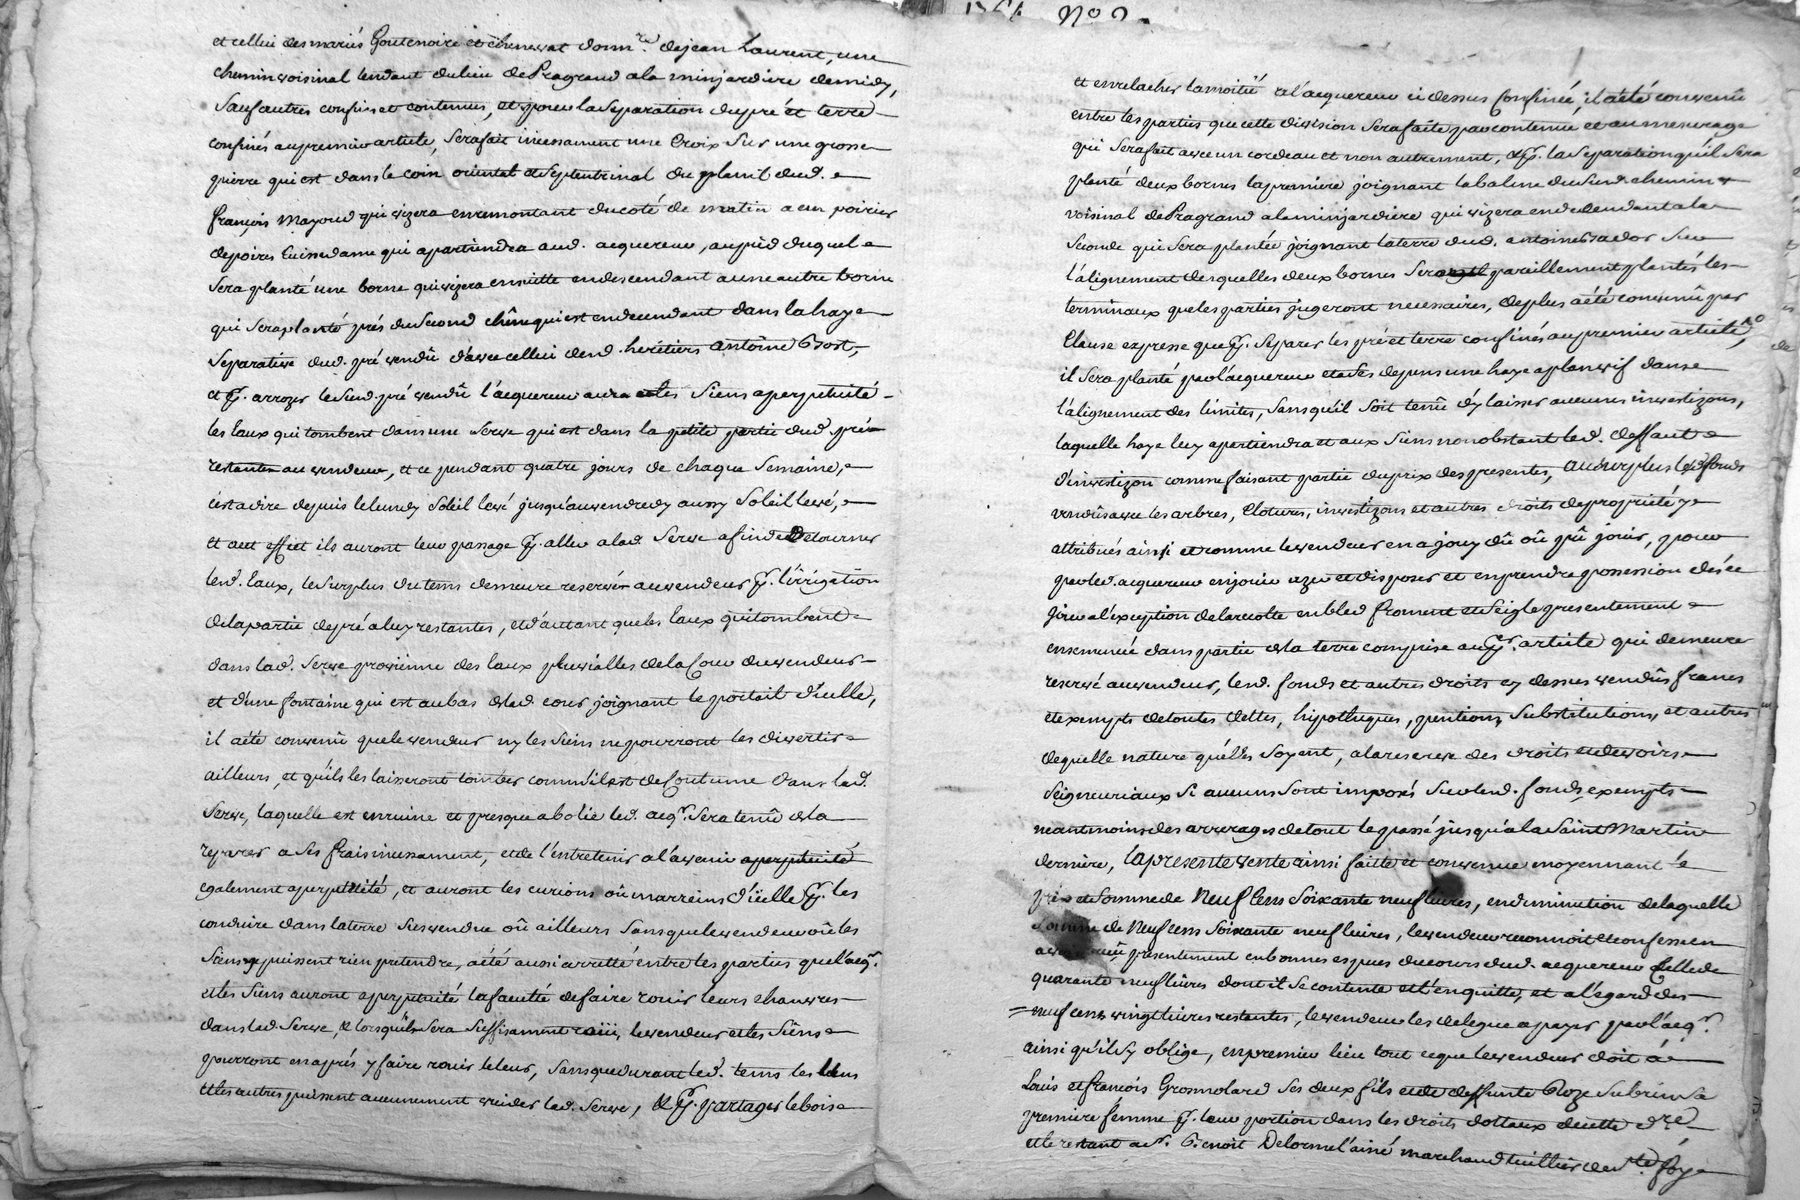 et cellui des mariés Goutenoire et chenevat domr. de jean Laurent, une
chemin voisinal tendant du lieu de Pragrand a la minjardiere de midy,
Sauf autres confins et contenus, et pour la Separation du pré et terre
confinés au premier article, Sera fait incessament une Croix Sur une grosse
pierre qui est dans le coin oriental et Septentrinal du plant dud.
françois Mayoud qui vizera en remontant du coté de matin a un poirier
de poires Cuissedame qui apartiendra aud. acquereur, au pied duquel
Sera planté une borne qui vizera ensuitte en descendant a une autre borne
qui Sera planté près du Second chêne qui est en decendant dans la haye
Separative dud. pré vendû d'avec cellui desd. heretiers Antoine Bost,
et pr. arrozer le Susd. pré vendû l'acquereur aura et les Siens a perpetuité
les Eaux qui tombent dans une Serve qui est dans la petite partie dud. pré
restante au vendeur, et ce pendant quatre jours de chaque Semaine,
c'est a dire depuis le lundy Soleil levé jusqu'au vendredy aussy Soleil levé,
et a cet effet ils auront leur passage pr. aller a lad. Serve afin de Detourner
lesd. Eaux, le Surplus du tems demeure reservé au vendeur pr. l'irrigation
de la partie de pré a luy restantes, et d'autant que les Eaux qui tombent
dans lad. Serve provienne des Eaux pluvialles de la Cour du vendeur
et d'une fontaine qui est au bas de lad. cour, joignant le portail d'icelle,
il a été convenû que le vendeur ny les Siens ne pourront les divertir
ailleurs, et qu'ils les laisseront tomber comm'il est de Coutume dans lad.
Serve, laquelle est en ruine et presque abolie led. acqr. Sera tenû de la
reparer a Ses frais incessament, et de l'entretenir a l'avenir a perpetuité
egalement a perpetuité, et auront les curions où marreins d'icelle pr. les
conduire dans la terre Susvendue où ailleurs Sans que le vendeur où les
Siens y puissent rien pretendre, a été aussi arretté entre les parties que l'acqr.
et les Siens auront a perpetuité la faculté de faire rouir leurs chanvres
dans lad. Serve, et lorsqu'il Sera Suffisament roüi, le vendeur et les Siens
pourront en après y faire rouir le leur, Sans que durant led. tems les Uns
et les autres puissent aucunement vuider lad. Serve, et pr. partager le bois
1761 No 2.
et en relacher la moitié a l'acquereur ci dessus Confinée, il a été convenû
entre les parties que cette division Sera faite par contenue et au mesurage
qui Sera fait avec un cordeau et non autrement, et pr. la Separation qu'il Sera
planté deux bornes la premiere joignant la balme du Susd. chemin
voisinal de Pragrand a la minjardiere qui vizera en dedendant a la
Seconde qui Sera plantée joignant la terre dud. antoine Sur
l'alignement desquelles deux bornes Seront pareillement plantés les
terminaux que les parties jugeront necessaires, de plus a été convenû par
Clause expresse que pr. Separer les pré et terre confinés au premier article,
il Sera planté par l'acquereur et a Ses depens une haye a plan vif dans
l'alignement des limites, Sans qu'il Soit tenû d'y laisser aucunes investizons,
laquelle haye luy apartiendra et aux Siens nonobstant led. deffaut
d'investizon comme faisant partie du prix des presentes, Au Surplus lesd. fonds
vendûs avec les arbres, Clotures, investizons et autres droits de propriété y
attribués ainsi et comme le vendeur en a jouy dû où pû jouir, pour
par led. acquereur en jouir uzer et disposer et en prendre possession dès ce
jour a l'exception de la recolte en bled froment et Seigle presentement
ensemencé dans partie de la terre comprise au pr. article qui demeure
reservé au vendeur, lesd. fonds et autres droits cy dessus vendûs francs
et exempts de toutes dettes, hipotheques, pentions, Substitutions, et autres
de quelle nature qu'elles Soyent, a la reserve des droits et devoirs
Seigneuriaux Si aucuns Sont imposés Sur lesd. fonds, exempts
neantmoins des arrerages de tout le passé jusqu'a la Saint Martin
derniere, la presente vente ainsi faite et convenue moyennant le
prix et Somme de Neuf Cens Soixante neuf livres, en diminution de laquelle
Somme de Neuf cens Soixante neuf livres, le vendeur reconnoit et confesse en
avoir reçû presentement en bonnes especes du cours dud. acquereur Celle de
quarante neuf livres dont il Se contente et l'en quitte, et a l'egard des
neuf cens vingt livres restantes, le vendeur les delegue a payer par l'acqr.
ainsi qu'il S'y oblige, en premier lieu tout ce que le vendeur doit à
Louis et françois Grosmolard Ses deux fils et de deffunte Roze Subrin Sa
premiere femme pr. leur portion dans les droits dottaux de cette dre.
et le restant a Sr. Benoit Delorme l'ainé marchand tuillier de Ste. foy